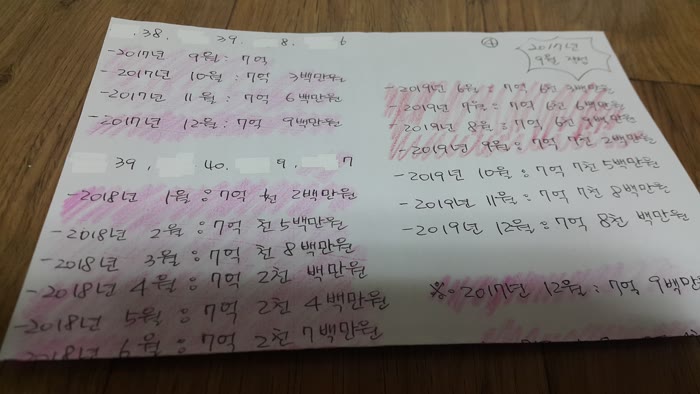 .38. 39. 8. 6
-2017년 9월 : 7억
-2017년 10월 : 7억 3백만원
-2017년 11월 : 7억 6백만원
-2017년 12월 : 7억 9백만원
39. 40. 9. 7
-2018년 1월 : 7억 천 2백만원
-2018년 2월 : 7억 천 5백만원
-2018년 3월 : 7억 천 8백만원
-2018년 4월 : 7억 2천 백만원
-2018년 5월 : 7억 2천 4백만원
-2018년 6월 : 7억 2천 7백만원
④
2017년
9월
-2019년 6월 : 7억 6천 3백만원
-2019년 7월 : 7억 6천 6백만원
-2019년 8월 : 7억 6천 9백만원
-2019년 9월 : 7억 7천 2백만원
-2019년 10월 : 7억 7천 5백만원
-2019년 11월 : 7억 7천 8백만원
-2019년 12월 : 7억 8천 백만원
※-2017년 12월 : 7억 9백만